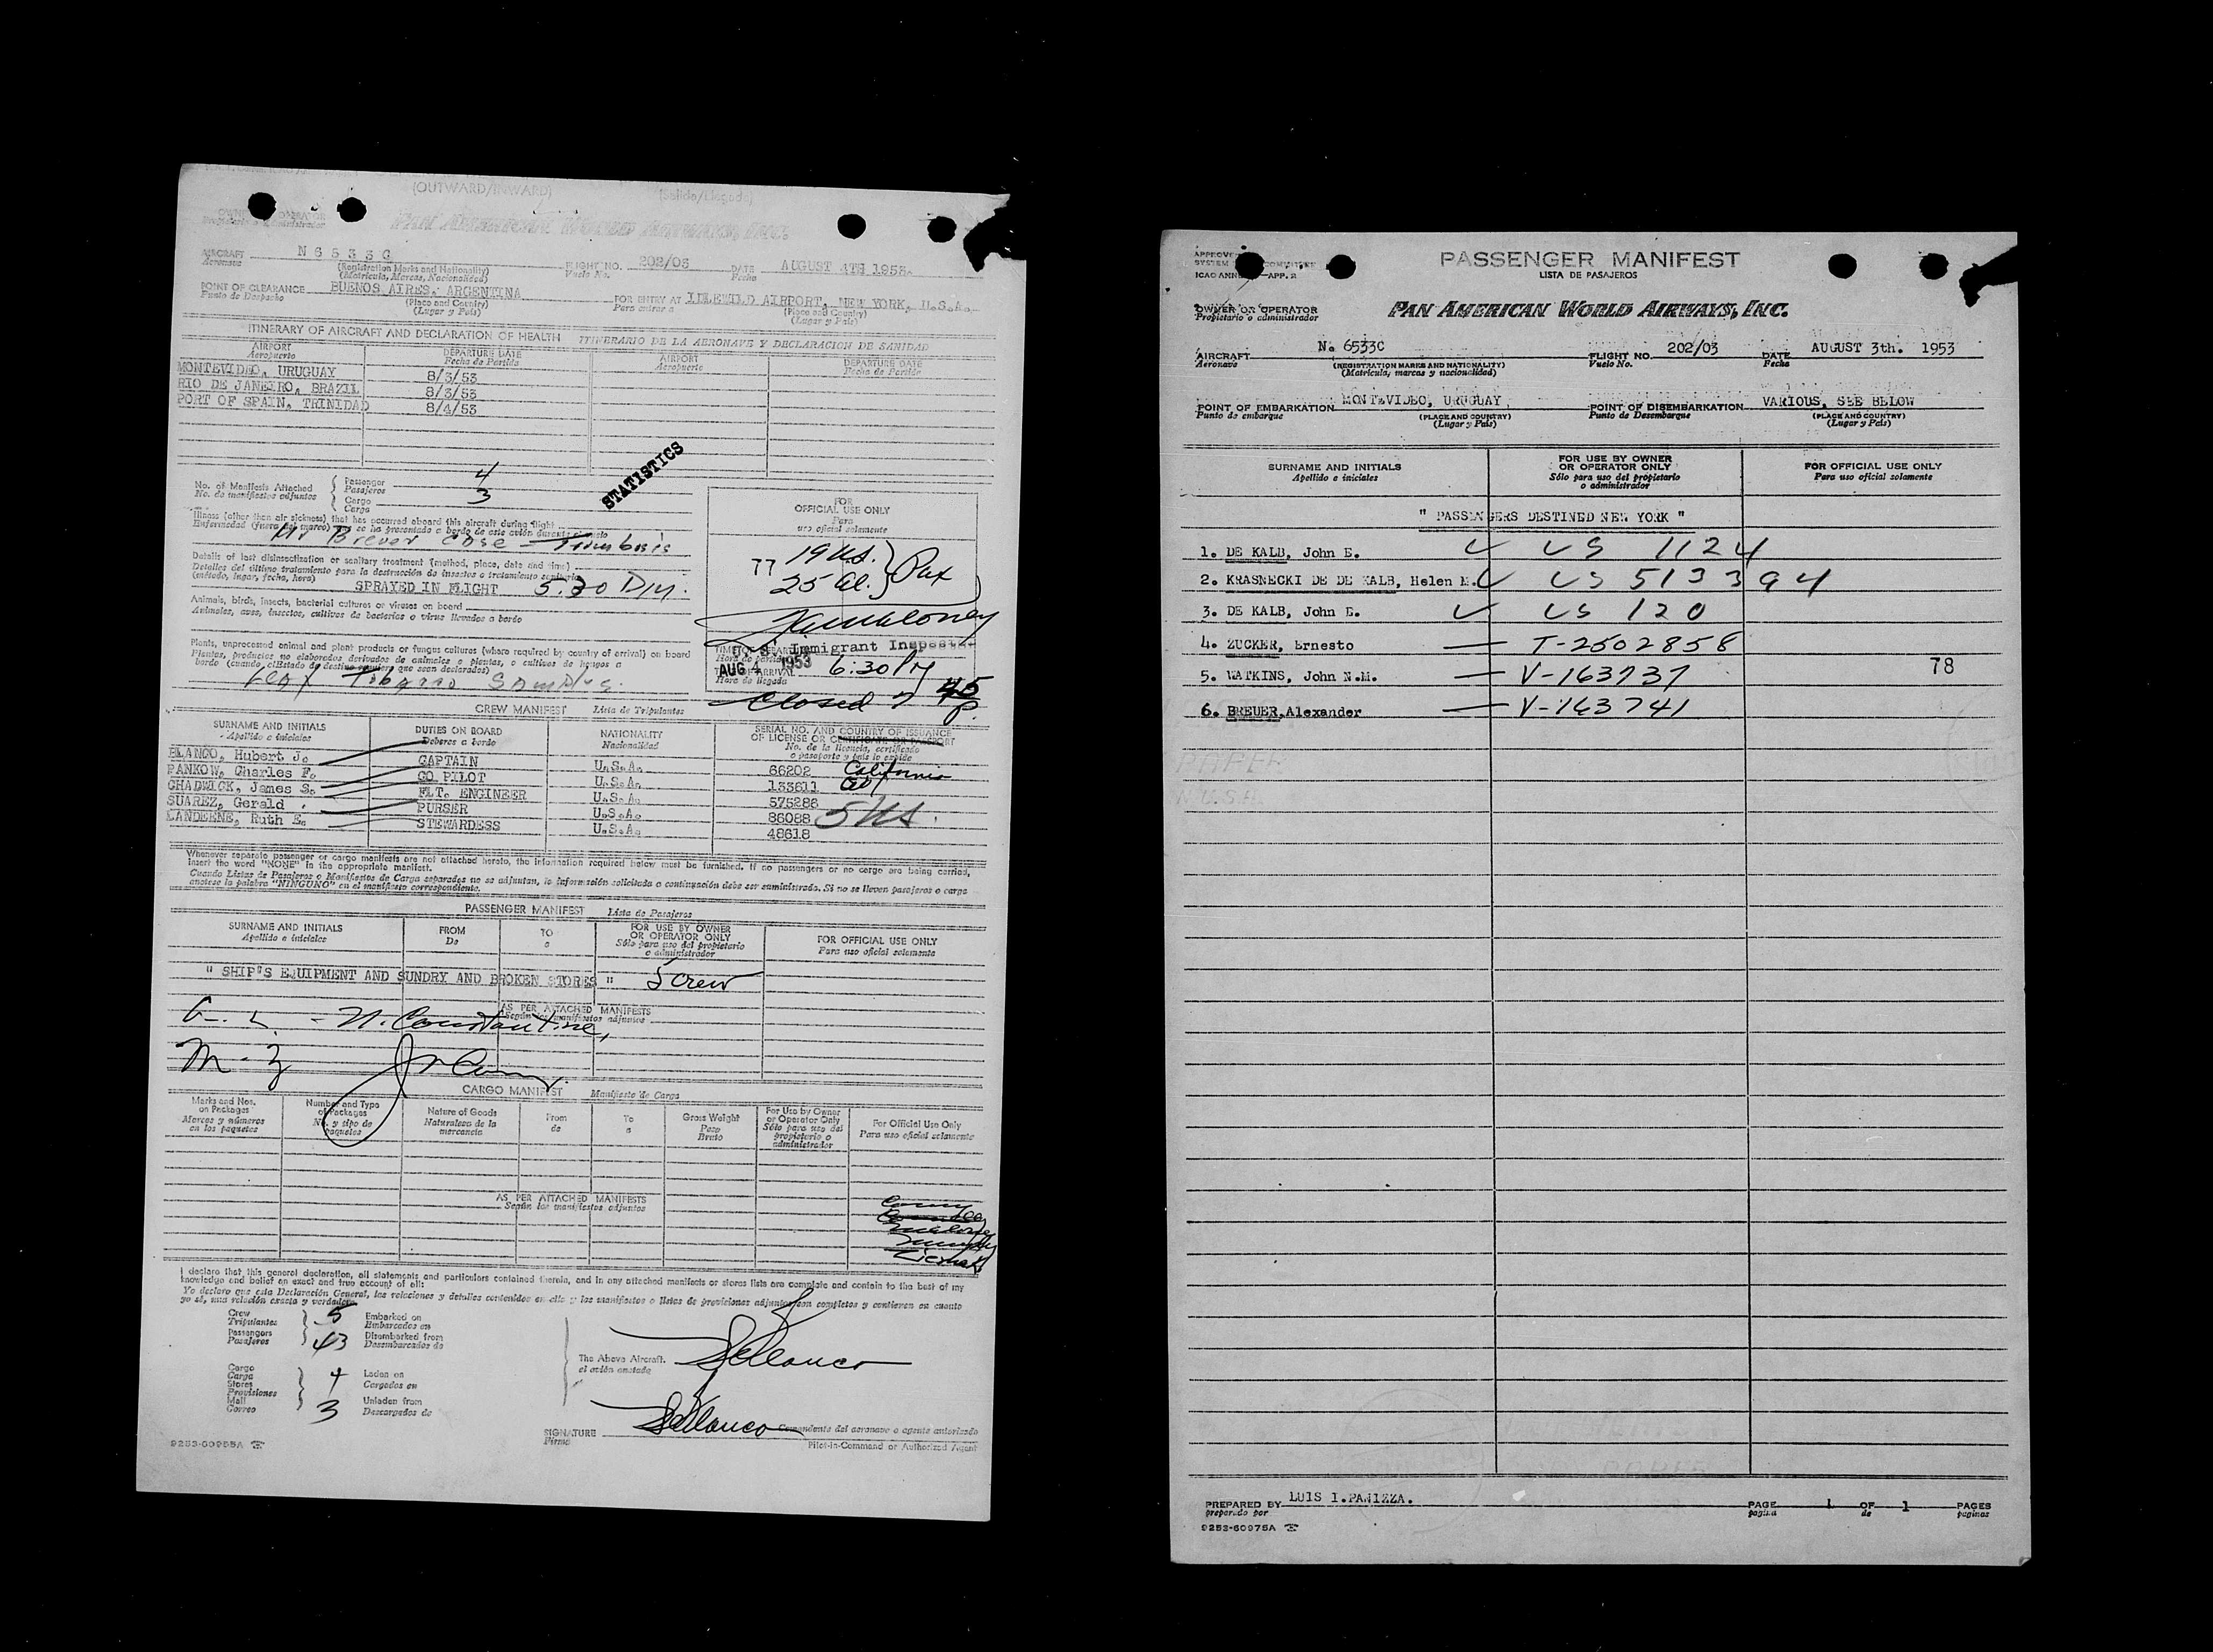 (OUTWARD/INWARD) (Salida/Llegada)
PAN AMERICAN WORLD AIRWAYS, INC.
AIRCRAFT N6533C FLIGHT NO. 202/03 DATE AUGUST 4TH 1953.
Aeronave (Registration Marks and Nationality) Vuelo No. Fecha
(Matrícula, Marcas, Nacionalidad)
POINT OF CLEARANCE BUENOS AIRES, ARGENTINA FOR ENTRY AT IDLEWILD AIRPORT, NEW YORK, U.S.A.
Punto de Despacho (Place and Country) Para entrar a (Place and Country)
(Lugar y País) (Lugar y País)
ITINERARY OF AIRCRAFT AND DECLARATION OF HEALTH ITINERARIO DE LA AERONAVE Y DECLARACION DE SANIDAD
AIRPORT DEPARTURE DATE AIRPORT DEPARTURE DATE
Aeropuerto Fecha de Partida Aeropuerto Fecha de Partida
MONTEVIDEO, URUGUAY 8/3/53
RIO DE JANEIRO, BRAZIL 8/3/53
PORT OF SPAIN, TRINIDAD 8/4/53
STATISTICS
No. of Manifests Attached Passenger 4
No. de manifiestos adjuntos Pasajeros
Cargo 3
Carga
Illness (other than air sickness) that has occurred aboard this aircraft during flight
Enfermedad (fuera del mareo) que se ha presentado a bordo de este avión durante el vuelo
Mr Brever Case
Details of last disinsectization or sanitary treatment (method, place, date and time)
Detalles del último tratamiento para la destrucción de insectos o tratamiento sanitario
(método, lugar, fecha, hora)
SPRAYED IN FLIGHT 5:30 PM.
Animals, birds, insects, bacterial cultures or viruses on board
Animales, aves, insectos, cultivos de bacterias o virus llevados a bordo
Plants, unprocessed animal and plant products or fungus cultures (where required by country of arrival) on board
Plantas, productos no elaborados derivados de animales o plantas, o cultivos de hongos a
bordo (cuando el Estado de destino requiere que sean declarados)
Leaf Tobacco Samples.
FOR
OFFICIAL USE ONLY
Para
uso oficial solamente
77 19 US. Pax
25 Al.
U. S. Immigrant Inspector
AUG 4 1953 6:30 PM
Hora de llegada
Closed 7 45 P.
CREW MANIFEST Lista de Tripulantes
SURNAME AND INITIALS DUTIES ON BOARD NATIONALITY SERIAL NO. AND COUNTRY OF ISSUANCE
Apellido e iniciales Deberes a bordo Nacionalidad OF LICENSE OR CERTIFICATE OR PASSPORT
No. de la licencia, certificado
o pasaporte y país lo expide
BLANCO, Hubert J. CAPTAIN U.S.A. 66202 California
PANKOW, Charles F. CO PILOT U.S.A. 133611
CHADWICK, James S. FLT. ENGINEER U.S.A. 575286
SUAREZ, Gerald PURSER U.S.A. 86088 5 US.
LANDEENE, Ruth E. STEWARDESS U.S.A. 48618
Whenever separate passenger or cargo manifests are not attached hereto, the information required below must be furnished. If no passengers or no cargo are being carried,
insert the word "NONE" in the appropriate manifest.
Cuando Listas de Pasajeros o Manifiestos de Carga separados no se adjuntan, la información solicitada a continuación debe ser suministrada. Si no se lleven pasajeros o carga
anotese la palabra "NINGUNO" en el manifiesto correspondiente.
PASSENGER MANIFEST Lista de Pasajeros
SURNAME AND INITIALS FROM TO FOR USE BY OWNER FOR OFFICIAL USE ONLY
Apellido e iniciales De a OR OPERATOR ONLY Para uso oficial solamente
Sólo para uso del propietario
o administrador
" SHIP'S EQUIPMENT AND SUNDRY AND BROKEN STORES " 5 Crew
AS PER ATTACHED MANIFESTS
Según los manifiestos adjuntos
N. Constantine,
CARGO MANIFEST Manifiesto de Carga
Marks and Nos. Number and Type Nature of Goods From To Gross Weight For Use by Owner For Official Use Only
on Packages of Packages Naturaleza de la de a Peso or Operator Only Para uso oficial solamente
Marcas y números No. y tipo de mercancía Bruto Sólo para uso del
en los paquetes paquetes propietario o
administrador
AS PER ATTACHED MANIFESTS
Según los manifiestos adjuntos
I declare that this general declaration, all statements and particulars contained therein, and in any attached manifests or stores lists are complete and contain to the best of my
knowledge and belief an exact and true account of all:
Yo declaro que esta Declaración General, las relaciones y detalles contenidos en ella y los manifiestos o listas de provisiones adjuntos son completos y contienen en cuanto
yo sé, una relación exacta y verdadera
Crew 5 Embarked on
Tripulantes Embarcados en
Passengers 43 Disembarked from
Pasajeros Desembarcados de
The Above Aircraft.
el avión anotado
Cargo
Carga 4 Laden on
Stores Cargados en
Provisiones
Mail 3 Unladen from
Correo Descargados de
SIGNATURE Comandante del aeronave o agente autorizado
Firma Pilot-in-Command or Authorized Agent
9253-60955A
PASSENGER MANIFEST
LISTA DE PASAJEROS
ICAO ANNE APP. 2
OWNER OR OPERATOR PAN AMERICAN WORLD AIRWAYS, INC.
Propietario o administrador
AIRCRAFT N. 6533C FLIGHT NO. 202/03 DATE AUGUST 3th. 1953
Aeronave (REGISTRATION MARKS AND NATIONALITY) Vuelo No. Fecha
(Matrícula, marcas y nacionalidad)
POINT OF EMBARKATION MONTEVIDEO, URUGUAY POINT OF DISEMBARKATION VARIOUS, SEE BELOW
Punto de embarque (PLACE AND COUNTRY) Punto de Desembarque (PLACE AND COUNTRY)
(Lugar y País) (Lugar y País)
SURNAME AND INITIALS FOR USE BY OWNER FOR OFFICIAL USE ONLY
Apellido e iniciales OR OPERATOR ONLY Para uso oficial solamente
Sólo para uso del propietario
o administrador
" PASSENGERS DESTINED NEW YORK "
1. DE KALB, John E. US 1124
2. KRASNECKI DE DE KALB, Helen M. US 513394
3. DE KALB, John E. US 120
4. ZUCKER, Ernesto T-2502858
5. WATKINS, John N.M. V-163737 78
6. BREUER, Alexander V-163741
PREPARED BY LUIS I. PANIZZA. PAGE 1 OF 1 PAGES
preparado por pagina de paginas
9253-60975A